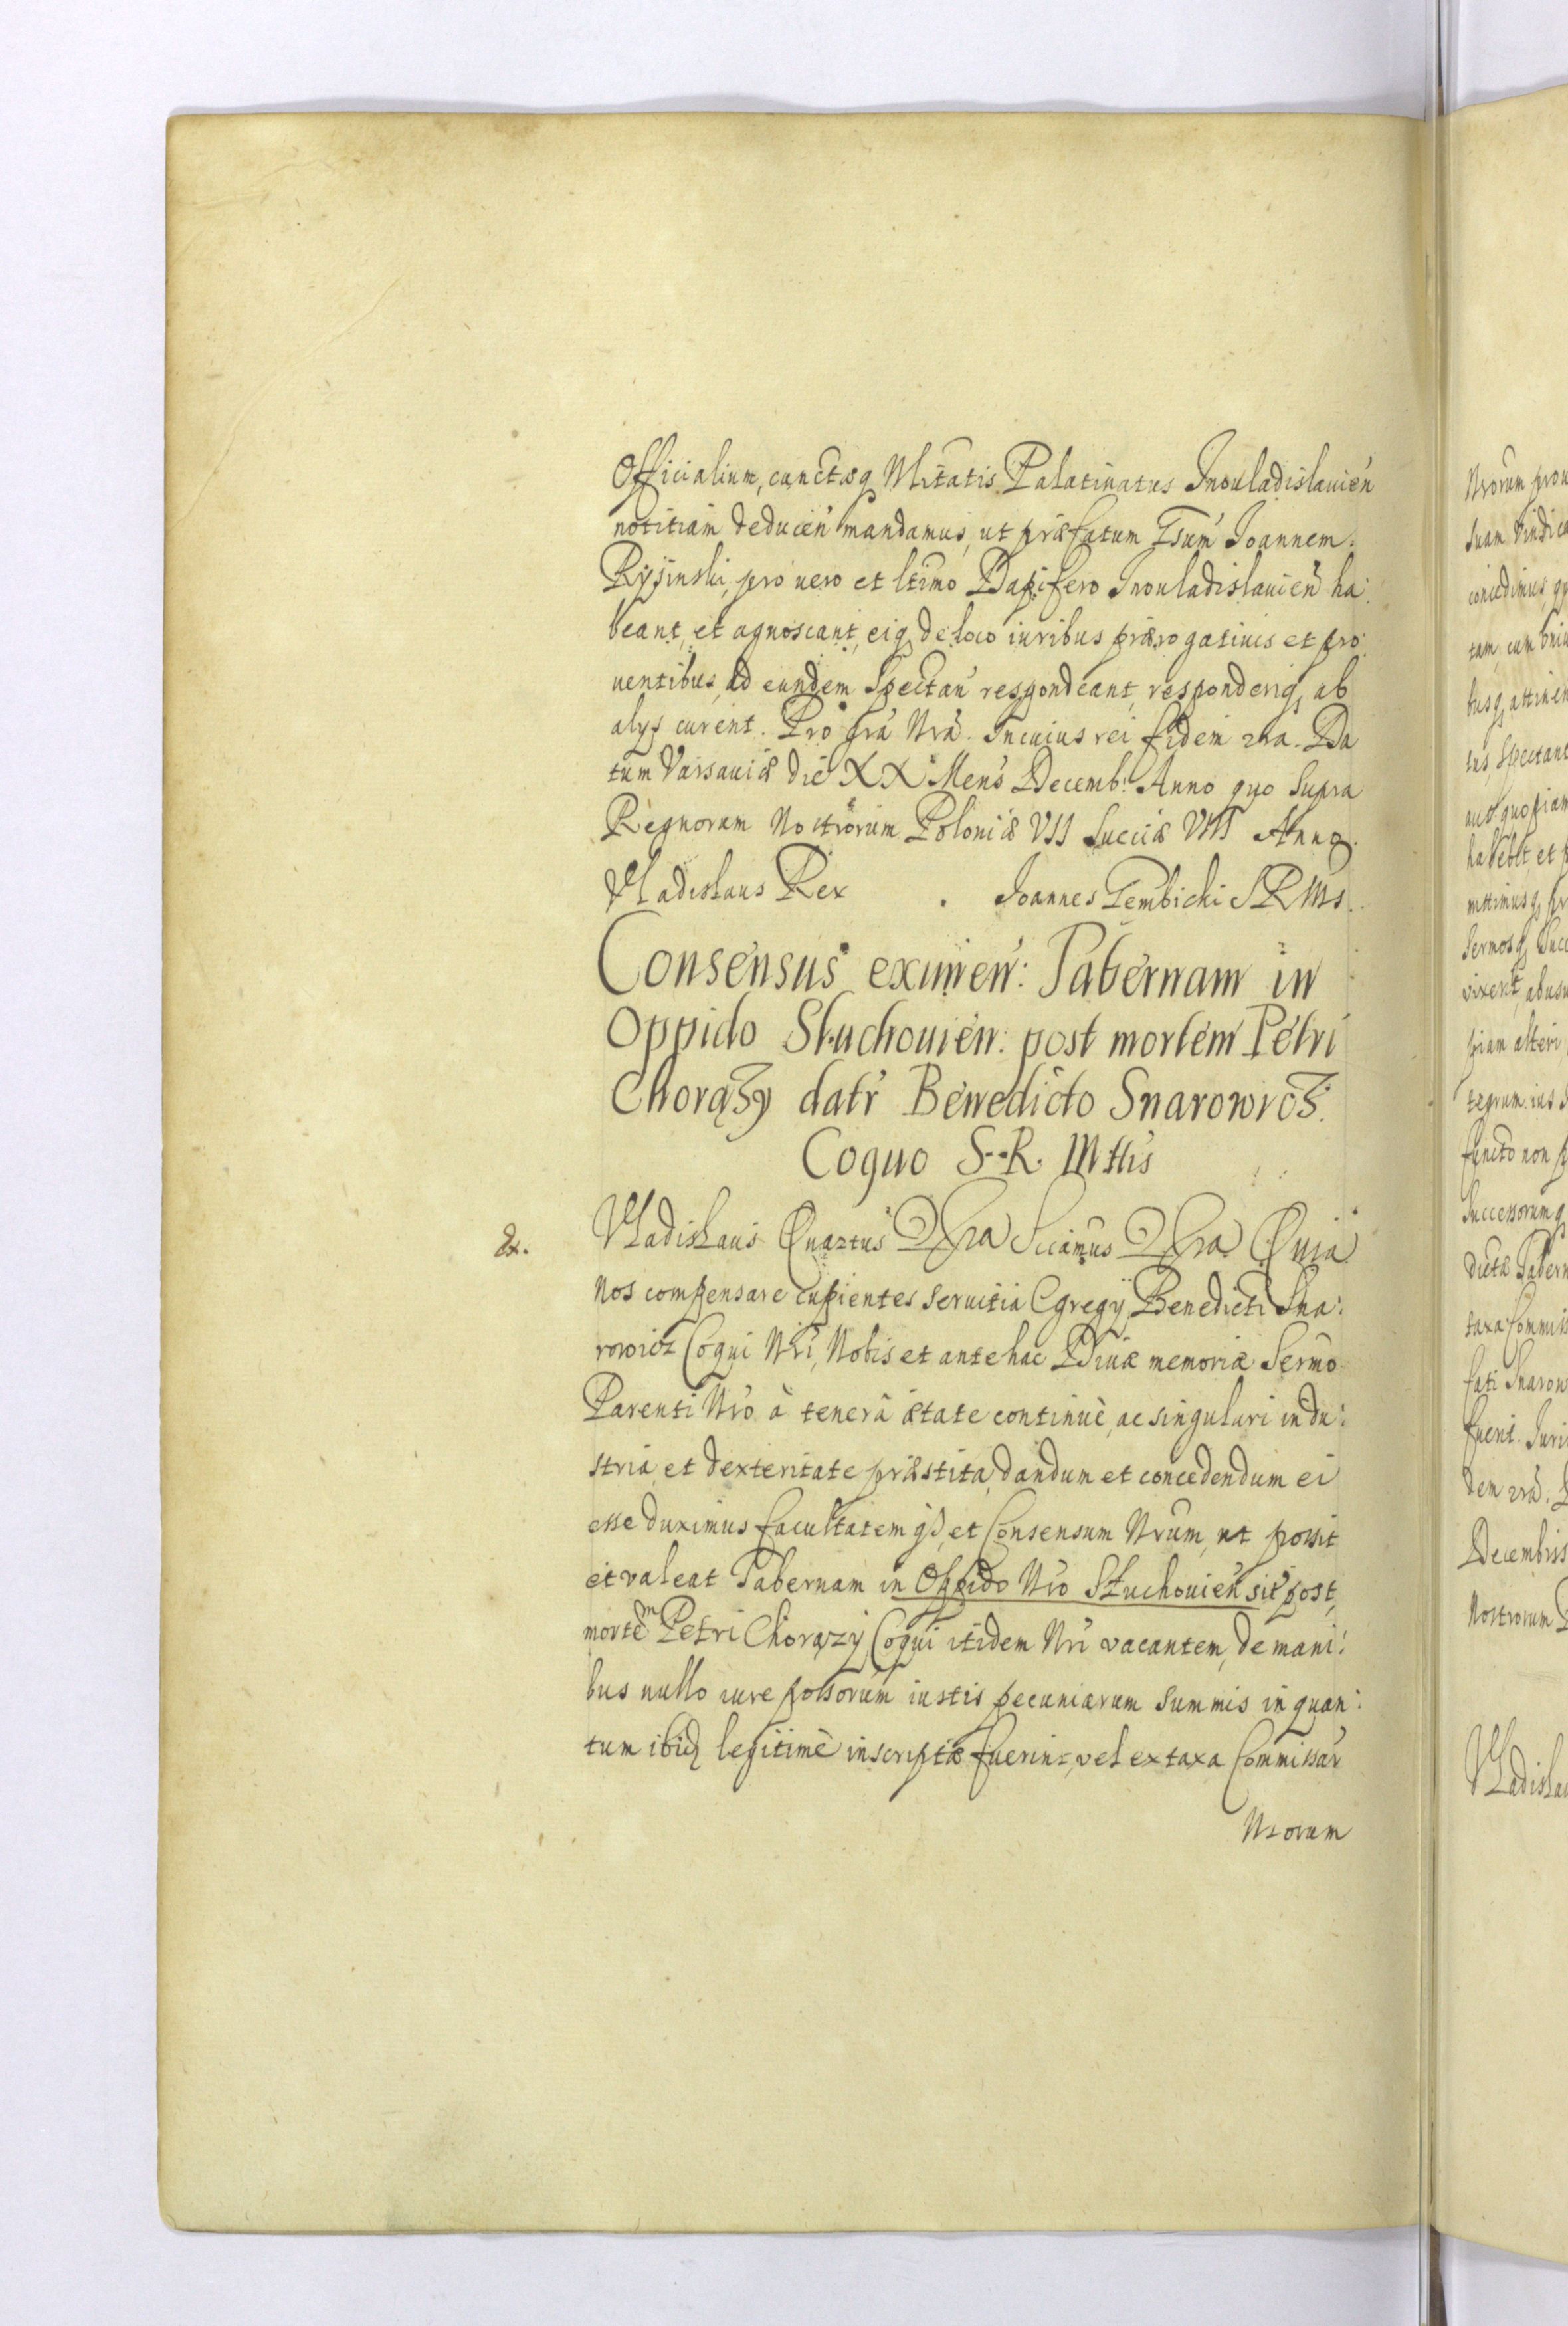 Officialium, cunctæq Nlitatis Palatinatus Inouladislauien̄
notitiam deducen̄ mandamus, ut præfatum Gsum Joannem
Rysinski, pro uero et ltimo Dapifero Inouladislauien̄ ha:
beant, et agnoscant, eiq, de loco iuribus prærogatiuis et pro:
uentibus, ad eundem Spectan̄ respondeant, responderiq, ab
alys curent. Pro gra Nra. Incuius rei fidem &ra. Da
tum Varsauiæ die XX Mens Decemb: Anno quo Supra
Regnorum Nostrorum Poloniæ VII Sueciæ VIII Anno
Vladislaus Rex . Joannes Gembicki SRMs.
Consensus eximen: Tabernam in
Oppido Stuchouien: post mortem Petri
Chorązy datr Benedicto Snarowicz.
Coquo S. R. Mttis
Ex. Vladislaus Quartus D Gra Sccamus D Gra Quia
Nos compensare cupientes seruitia Egregÿ Benedicti Sna:
rowicz Coqui Nri, Nobis et antehac Diuæ memoriæ Sermo
Parenti Nro à tenerâ ætate continuè, ac singulari indu:
stria et dexteritate præstita, dandum et concedendum ei
esse duximus facultatem qd, et Consensum Nrum, ut possit
et valeat Tabernam in Oppido Nro Stuchouien̄ sit post
mortem Petri Chorązy Coqui itidem Nri vacantem, de mani:
bus nullo iure possorum iustis pecuniarum summis in quan:
tum ibid legitimè inscriptæ fuerint, vel ex taxa Commissar
Nrorum
Nrorum
Suam
concedimus
tam, cum
busq, attinen
tus, Spectant
quopiam
habebit, et
mittimusq,
Sermosq, Succ
vixerit, abusu
piam alteri
tegrum ius
functo non
Successorumq
dictæ Tabern
taxa Commiss
fati Snarow
fuerit. Juri
dem &ra.
Decembris
Nostrorum
Vladislau